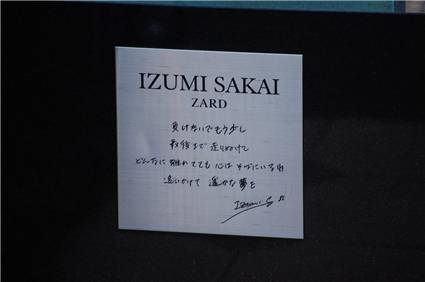 IZUMI SAKAI
ZARD
負けないでもう少し
最後まで走り抜けて
どんなに離れてても心はそばにいるわ
追いかけて遥かな夢を
Izumi S